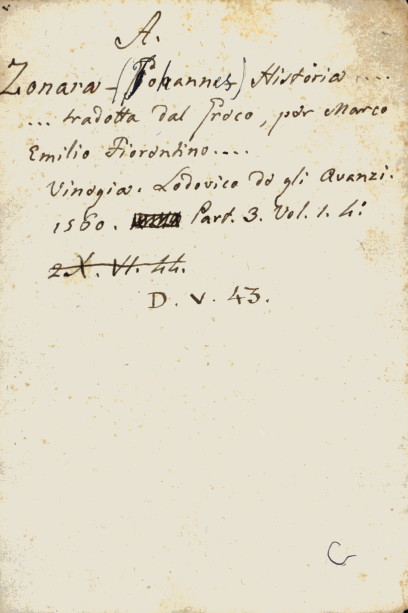 A.
Zonara - (Johannes) Historia ....
... tradotta dal Greco, per Marco
Emilio Fiorentino....
Vinegia. Lodovico de gli Avanzi.
1560. Part. 3. Vol. 1. 4:
2X. VI. 44.
D. V. 43.
G